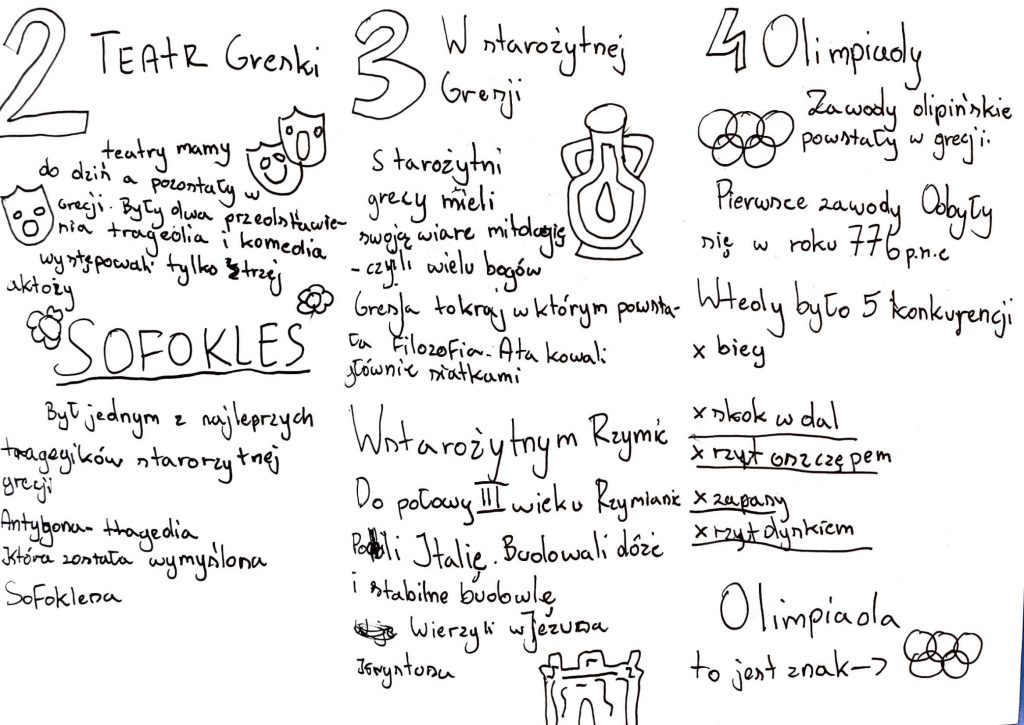 2 TEATR Greski
teatry mamy
do dziń a pozostały w
Grecji. Były dwa przedstawie-
nia tragedia i komedia
występowali tylko trzej
aktoży
SOFOKLES
Był jednym z najleprzych
tragegików starorzytnej
grecji
Antygona- tragedia
która została wymyślona
Sofoklesa
3 W starożytnej
Gresji
Starożytni
grecy mieli
swoją wiare mitologię
- czyli wielu bogów
Gresja to kraj w którym powsta-
ła Filozofia. Ata kowali
głównie siatkami
Wstarożytnym Rzymie
Do połowy III wieku Rzymianie
Podbili Italię. Budowali dóże
i stabilne búdowlę
Wierzyli w Jézusa
Krystusa
4 Olimpiady
Zawody olipińskie
powstały w grecji.
Pierwsce zawody Odbyły
się w roku 776 p.n.e
Wtedy było 5 konkurencji
x bieg
x skok w dal
x rzyt oszczępem
x zapasy
x rzyt dyskiem
Olimpiada
to jest znak->